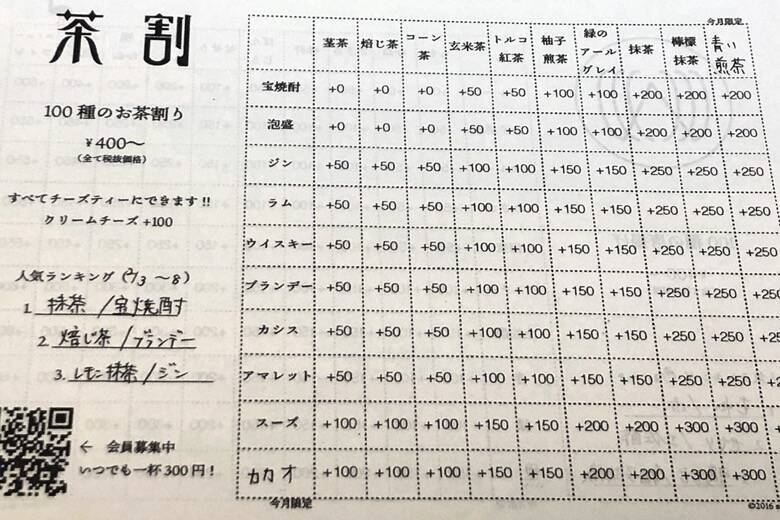 茶割
100種のお茶割り
¥400〜
(全て税抜価格)
すべてチーズティーにできます!!
クリームチーズ +100
人気ランキング (7/3 〜8)
1. 抹茶/宝焼酎
2. 焙じ茶/ブランデー
3. レモン抹茶/ジン
← 会員募集中
いつでも一杯300円!
今月限定
茎茶 焙じ茶 コーン茶 玄米茶 トルコ紅茶 柚子煎茶 緑のアールグレイ 抹茶 檸檬抹茶 青い煎茶
宝焼酎 +0 +0 +0 +50 +50 +100 +100 +200 +200 +200
泡盛 +0 +0 +0 +50 +50 +100 +100 +200 +200 +200
ジン +50 +50 +50 +100 +100 +150 +150 +250 +250 +250
ラム +50 +50 +50 +100 +100 +150 +150 +250 +250 +250
ウイスキー +50 +50 +50 +100 +100 +150 +150 +250 +250 +250
ブランデー +50 +50 +50 +100 +100 +150 +150 +250 +250 +250
カシス +50 +50 +50 +100 +100 +150 +150 +250 +250 +250
アマレット +50 +50 +50 +100 +100 +150 +150 +250 +250 +250
スーズ +100 +100 +100 +150 +150 +200 +200 +300 +300 +300
カカオ +100 +100 +100 +150 +150 +200 +200 +300 +300 +300
今月限定
©2016